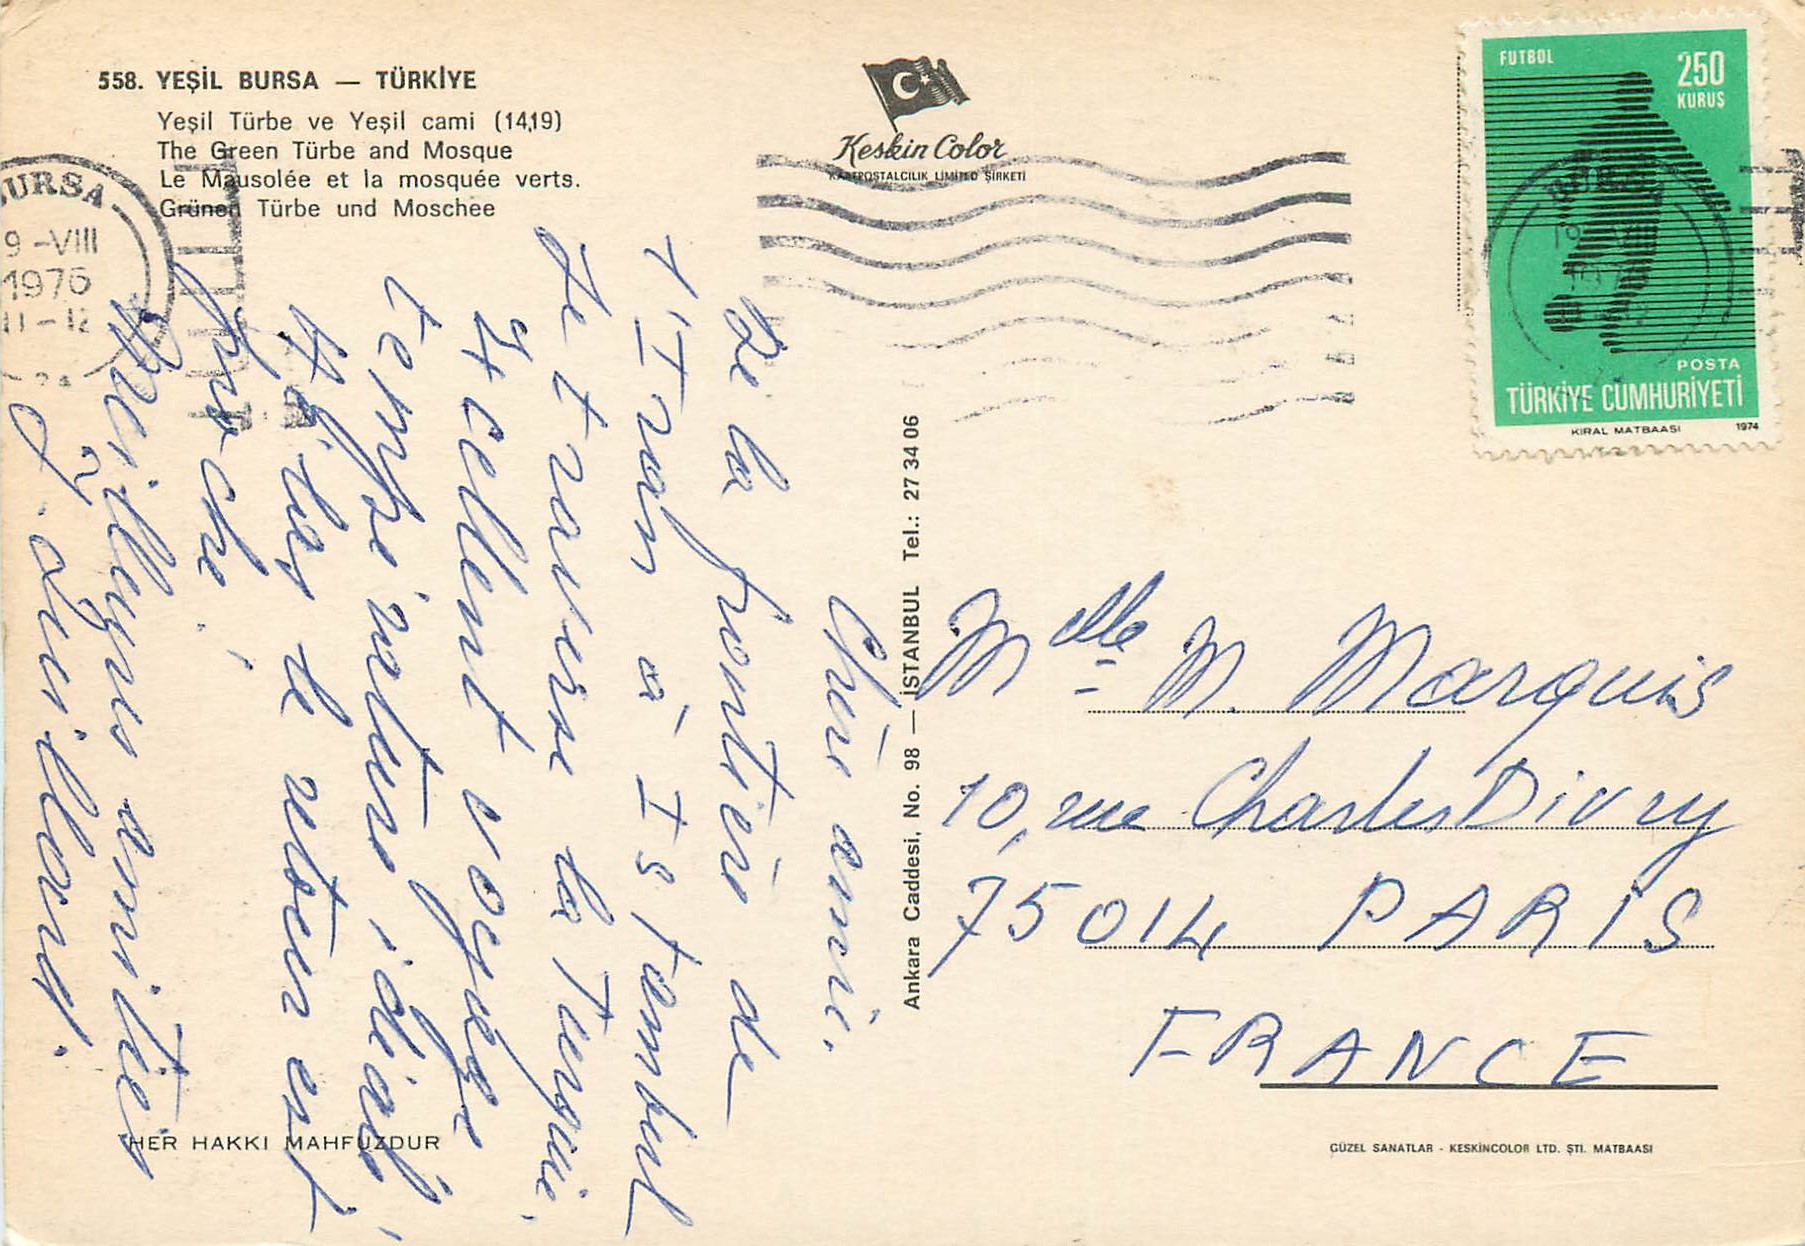 558. YEŞİL BURSA — TÜRKİYE
Yeşil Türbe ve Yeşil cami (1419)
The Green Türbe and Mosque
Le Mausolée et la mosquée verts.
Grünen Türbe und Moschee
Keskin Color
KARTPOSTALCILIK LİMİTED ŞİRKETİ
FUTBOL
250
KURUŞ
POSTA
TÜRKİYE CUMHURİYETİ
KIRAL MATBAASI 1974
BURSA
9-VIII
1976
11-12
Ankara Caddesi, No. 98 — İSTANBUL Tel.: 27 34 06
Chère amie,
De la frontière de
l'Iran à Istambul
je traverse la Turquie.
Excellent voyage
température idéale,
Hélas le retour est
proche!
Meilleures amitiés
Mlle M. Marquis
10, rue Charles Divry
75014 PARIS
FRANCE
HER HAKKI MAHFUZDUR
GÜZEL SANATLAR - KESKİNCOLOR LTD. ŞTİ. MATBAASI